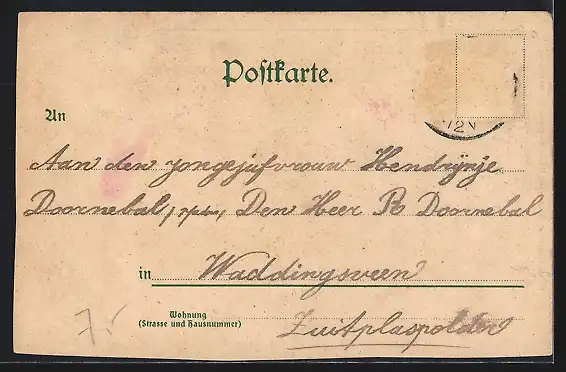 Postkarte.
12 V
An
Aan den jongejufvrouw Hendrijnje
Doornebal, Den Heer R Doornebal
in Waddingsveen
Wohnung
(Strasse und Hausnummer)
Zuitplaspolder
75